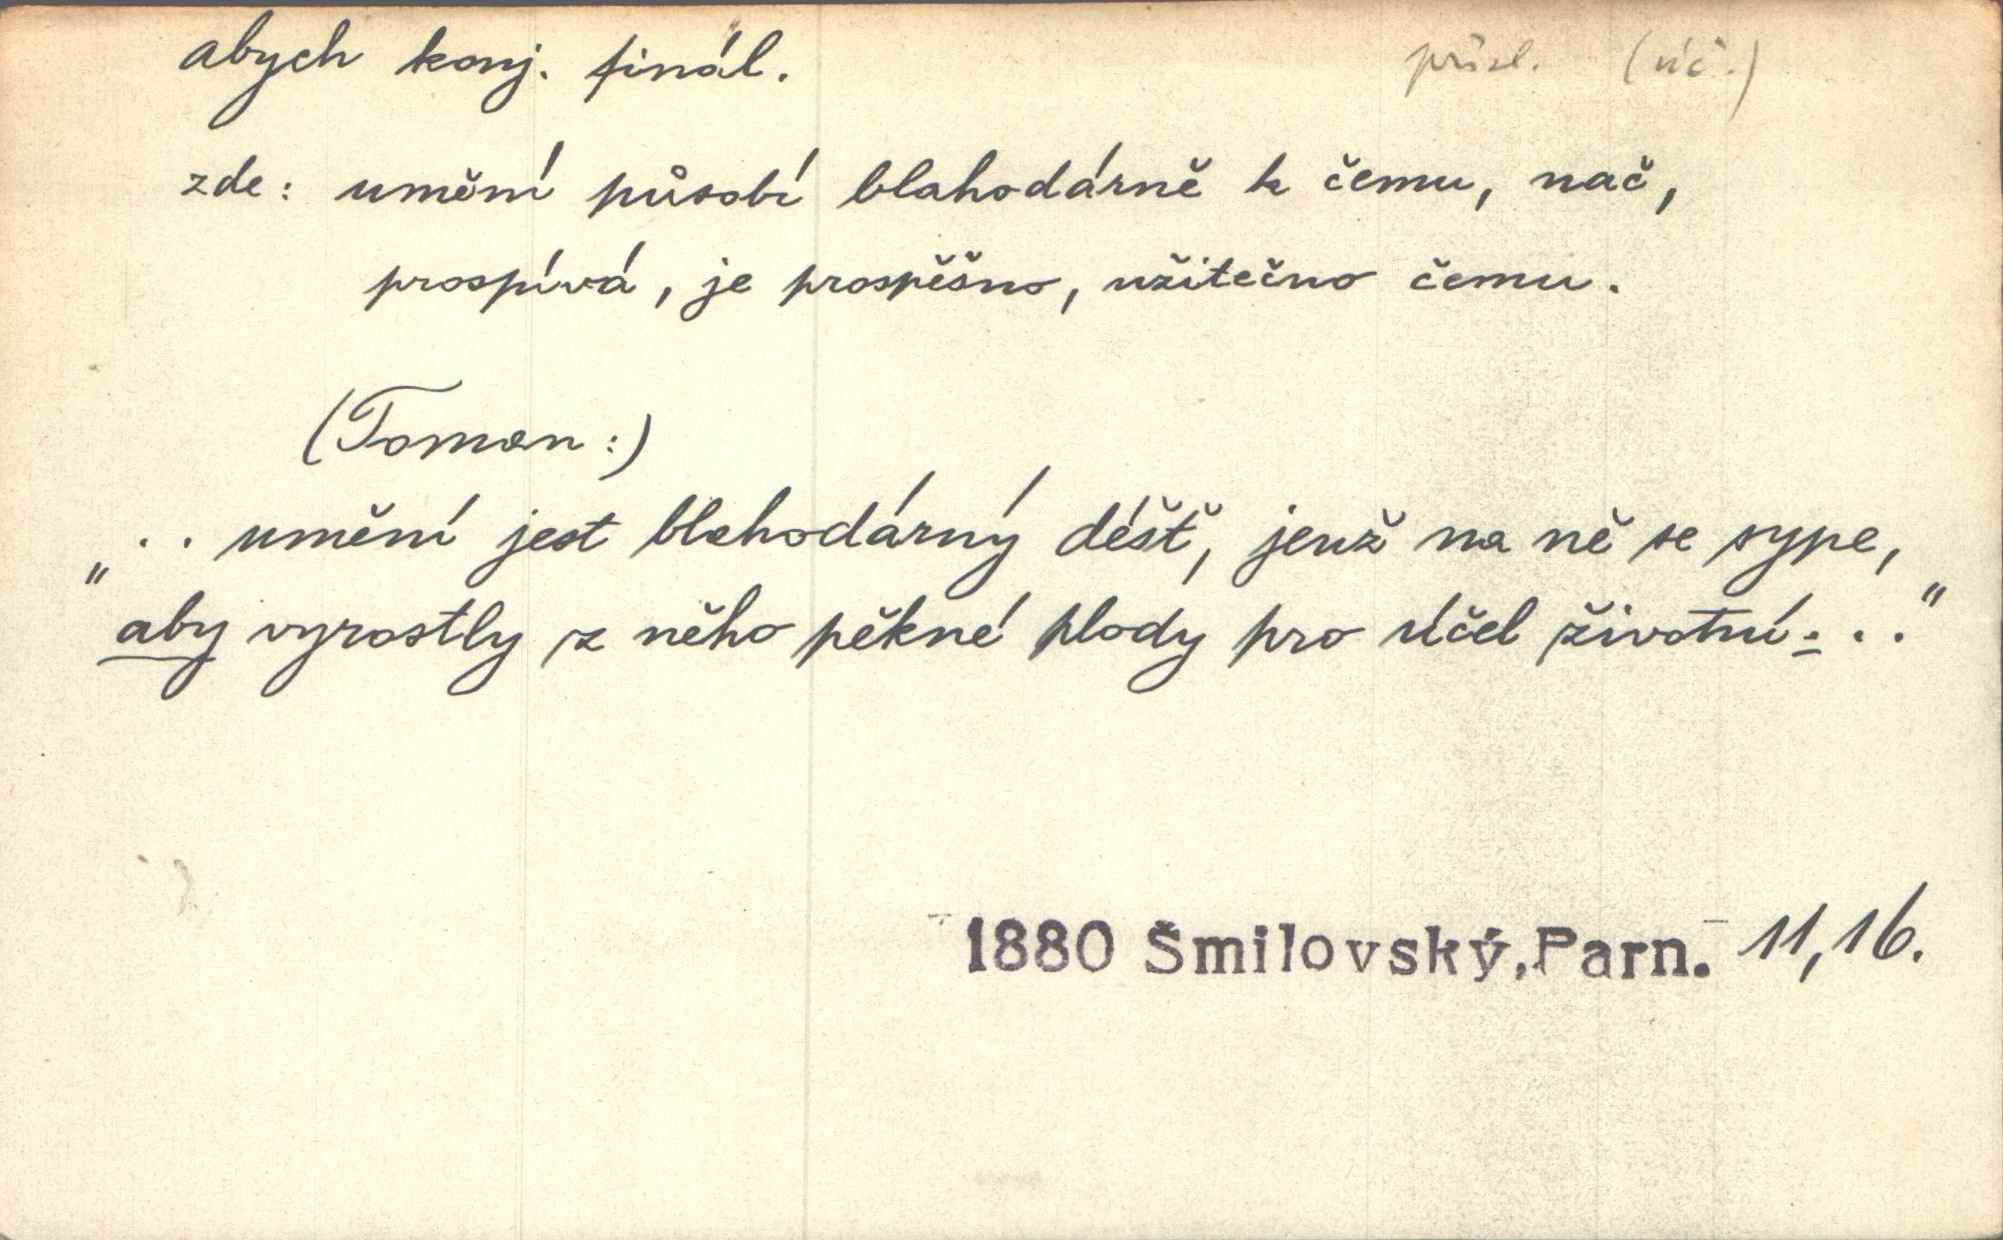 abych konj. finál. přísl. (úč.)
zde: umění působí blahodárně k čemu, nač,
prospívá, je prospěšno, užitečno čemu.
(Toman:)
„.. umění jest blahodárný déšť, jenž na ně se sype,
aby vyrostly z něho pěkné plody pro účel životní..."
1880 Šmilovský, Parn. 11, 16.